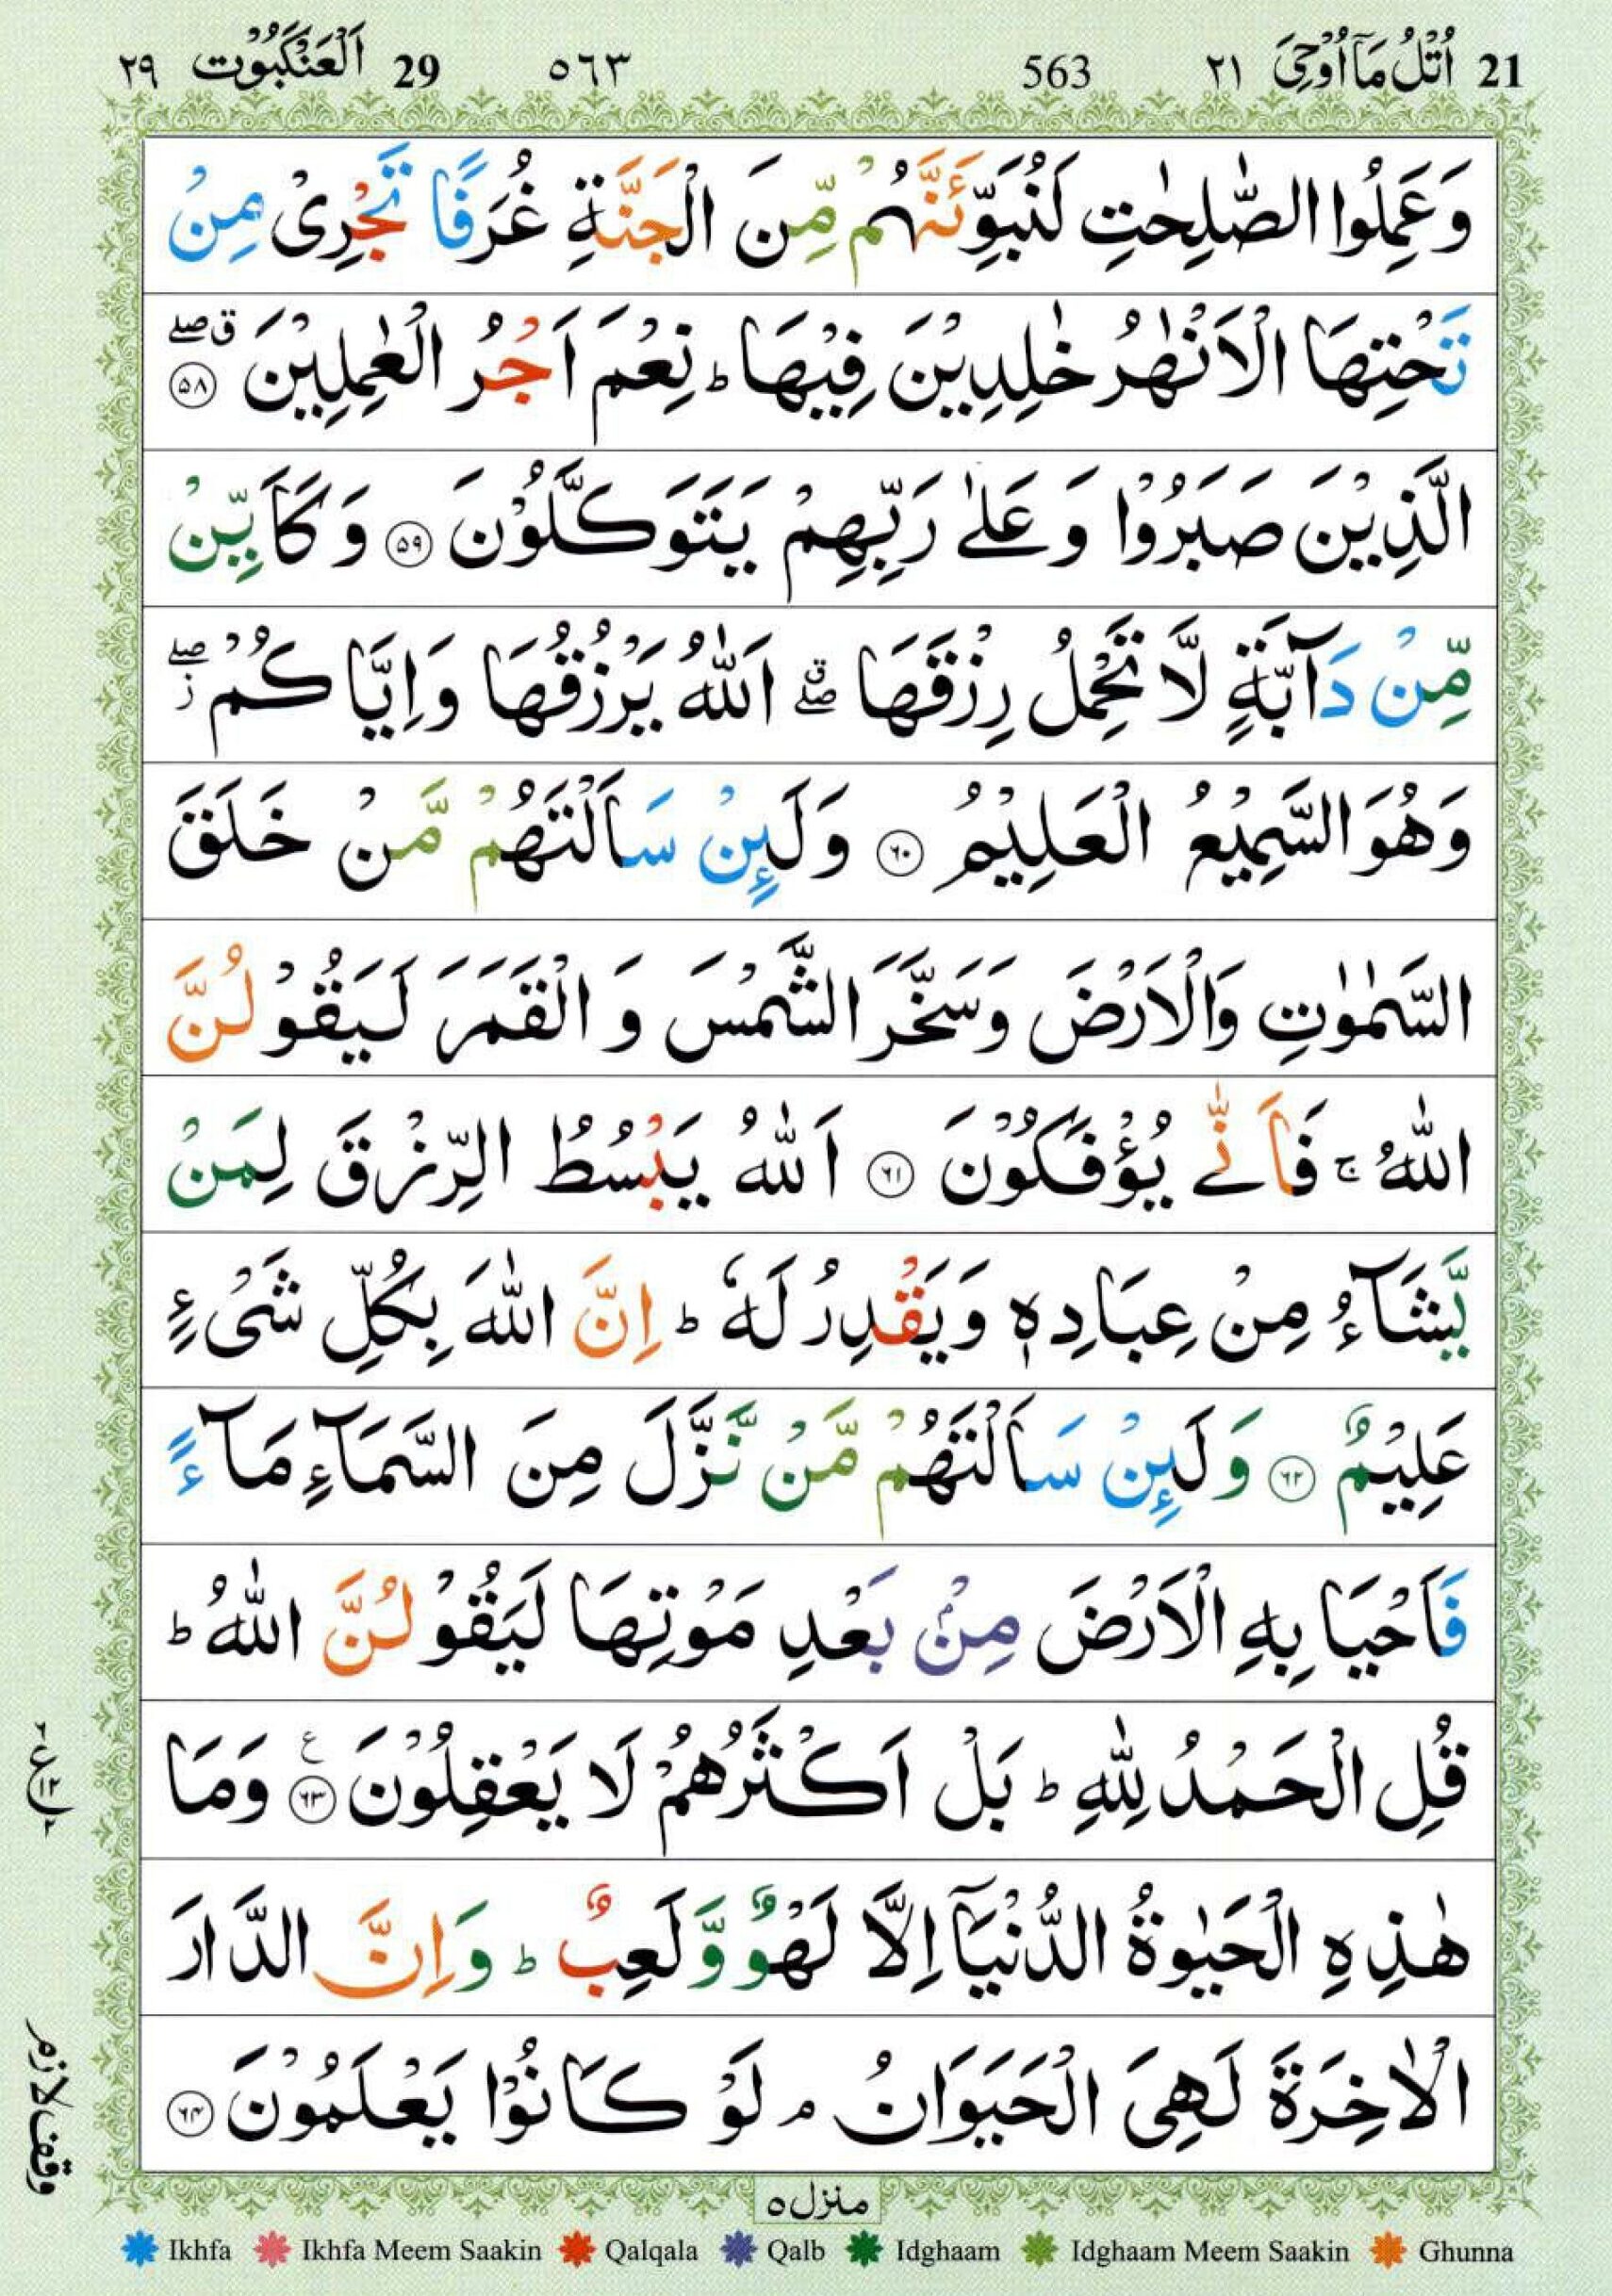 21 اُتْلُ مَآ اُوْحِیَ ٢١ 563 ٥٦٣ 29 اَلْعَنْكَبُوْت ٢٩
وَعَمِلُوا الصّٰلِحٰتِ لَنُبَوِّئَنَّهُمْ مِّنَ الْجَنَّةِ غُرَفًا تَجْرِیْ مِنْ
تَحْتِهَا الْاَنْهٰرُ خٰلِدِیْنَ فِیْهَا ؕ نِعْمَ اَجْرُ الْعٰمِلِیْنَ ۖۗ ۝۵۸
الَّذِیْنَ صَبَرُوْا وَ عَلٰی رَبِّهِمْ یَتَوَكَّلُوْنَ ۝۵۹ وَ كَاَیِّنْ
مِّنْ دَآبَّةٍ لَّا تَحْمِلُ رِزْقَهَا ۖۗ اَللّٰهُ یَرْزُقُهَا وَ اِیَّاكُمْ ۖؗ
وَ هُوَ السَّمِیْعُ الْعَلِیْمُ ۝۶۰ وَ لَىِٕنْ سَاَلْتَهُمْ مَّنْ خَلَقَ
السَّمٰوٰتِ وَ الْاَرْضَ وَ سَخَّرَ الشَّمْسَ وَ الْقَمَرَ لَیَقُوْلُنَّ
اللّٰهُ ۚ فَاَنّٰی یُؤْفَكُوْنَ ۝۶۱ اَللّٰهُ یَبْسُطُ الرِّزْقَ لِمَنْ
یَّشَآءُ مِنْ عِبَادِهٖ وَ یَقْدِرُ لَهٗ ؕ اِنَّ اللّٰهَ بِكُلِّ شَیْءٍ
عَلِیْمٌ ۝۶۲ وَ لَىِٕنْ سَاَلْتَهُمْ مَّنْ نَّزَّلَ مِنَ السَّمَآءِ مَآءً
فَاَحْیَا بِهِ الْاَرْضَ مِنْۢ بَعْدِ مَوْتِهَا لَیَقُوْلُنَّ اللّٰهُ ؕ
قُلِ الْحَمْدُ لِلّٰهِ ؕ بَلْ اَكْثَرُهُمْ لَا یَعْقِلُوْنَ ۝۶۳ ع وَ مَا
هٰذِهِ الْحَیٰوةُ الدُّنْیَاۤ اِلَّا لَهْوٌ وَّ لَعِبٌ ؕ وَ اِنَّ الدَّارَ
الْاٰخِرَةَ لَهِیَ الْحَیَوَانُ ۘ لَوْ كَانُوْا یَعْلَمُوْنَ ۝۶۴
وقف لازم
منزل ۵
Ikhfa Ikhfa Meem Saakin Qalqala Qalb Idghaam Idghaam Meem Saakin Ghunna